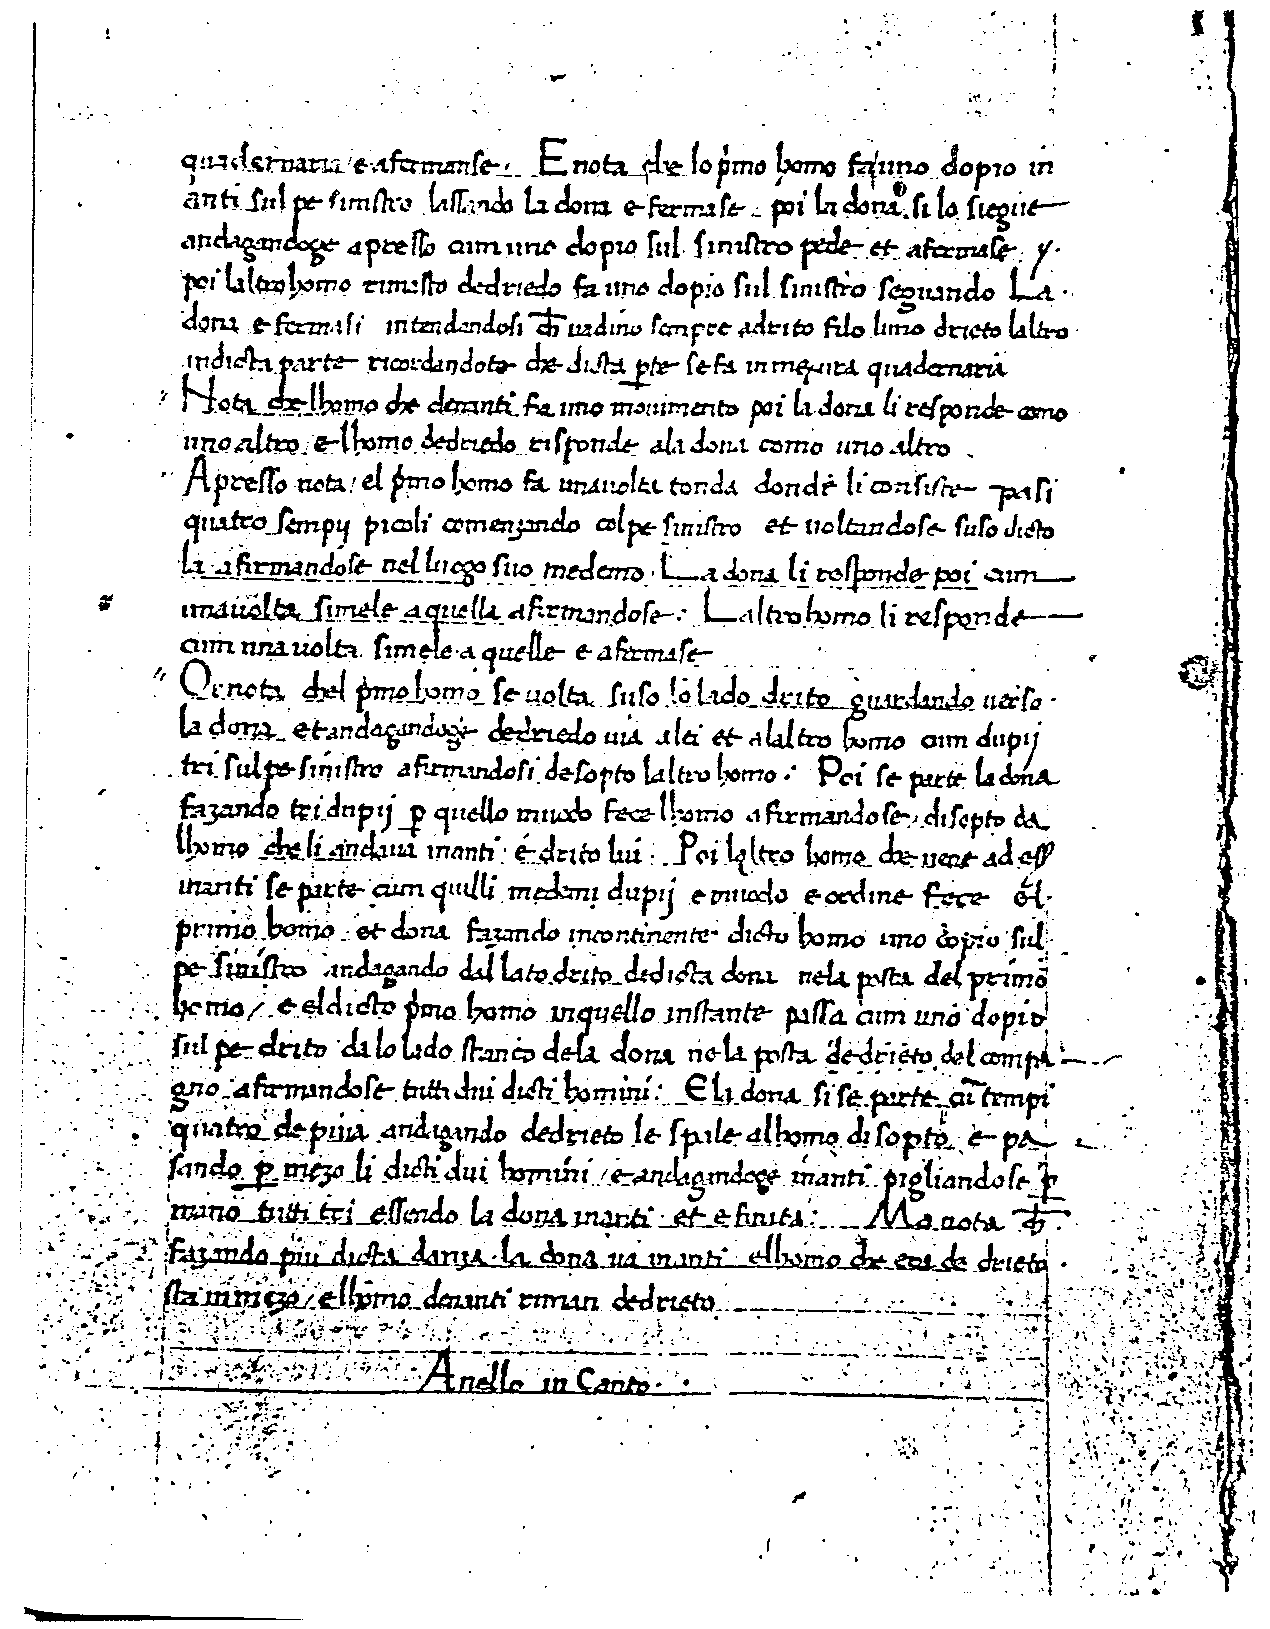 quadernaria e afermanse. E nota che lo p̄mo homo fa uno dopio in
anti sul pe sinistro lassando la dona e fermase. poi la dona si lo siegue
andagandoge apresso cum uno dopio sul sinistro pede et afermase y.
poi laltro homo rimasto dedriedo fa uno dopio sul sinistro seguando La.
dona e fermasi intendandosi ch̄ uadino sempre adrito filo limo drieto laltro
in dicta parte ricordandoto che dicta ꝑte se fa in mexura quadernaria
Nota che lhomo che denanti fa uno mouimento poi la dona li responde como
uno altro e lhomo dedriedo risponde ala dona como uno altro.
Apresso nota / el p̄mo homo fa una uolta tonda dondè li consiste pasi
quatro sempij picoli comenzando col pe sinistro et uoltandose suso dicto
la afirmandose nel luogo suo medemo. La dona li responde poi cum
una uolta simele a quella afirmandose: Laltro homo li responde
cum una uolta simele a quelle e afermase
Or nota chel p̄mo homo se uolta suso lo lado drito guardando uerso.
la dona et andagandoge dedriedo uia alei et alaltro homo cum dupij
tri sul pe sinistro afirmandosi desopto laltro homo: Poi se parte la dona
fazando tri dupij ꝑ quello muodo fece lhomo afirmandose disopto da
lhomo che li andaua inanti e drito lui. Poi laltro homo che uene ad ess̄
inanti se parte cum quilli medemi dupij e muodo e ordine fece el.
primo homo et dona fazando incontinente dicto homo uno dopio sul
pe sinistro andagando dal lato drito de dicta dona nela posta del primo
homo / e el dicto p̄mo homo in quello instante passa cum uno dopio
sul pe drito da lo lado stanco dela dona nela posta de drieto del compa
gno afirmandose tutti dui dicti homini: E la dona si se parte cū tempi
quatro de piua andagando dedrieto le spale alhomo di sopto e pa
sando ꝑ mezo li dicti dui homini / e andagandoge inanti pigliandose ꝑ
mano tutti tri essendo la dona inanti et e finita: Ma nota ch̄.
fazando piu dicta danza la dona ua inanti el homo che era de drieto
sta in mezo / el homo denanti riman dedrieto
Anello in Canto.